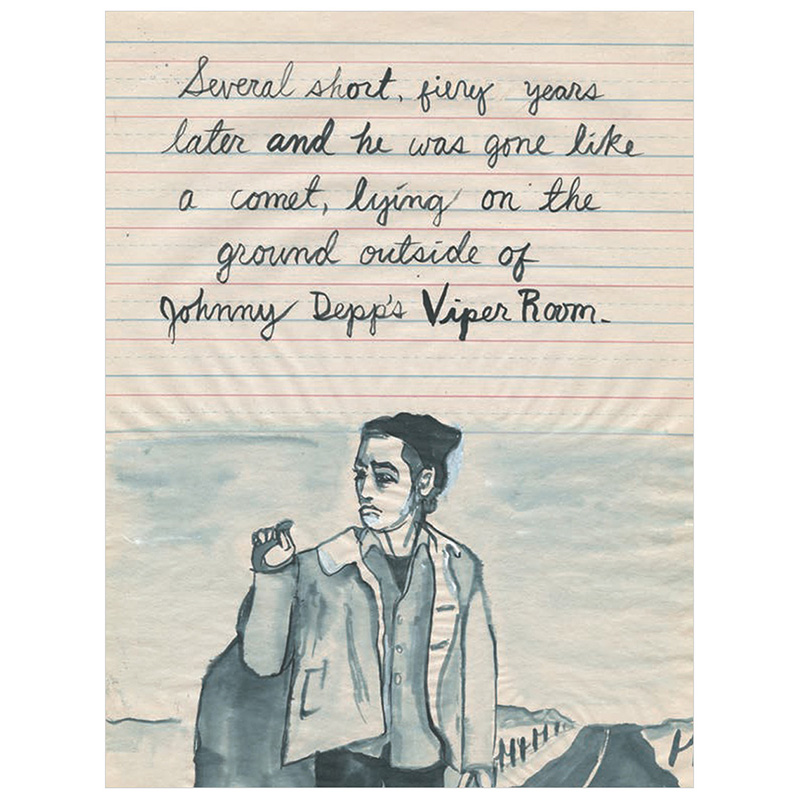 Several short, fiery years
later and he was gone like
a comet, lying on the
ground outside of
Johnny Depp's Viper Room.